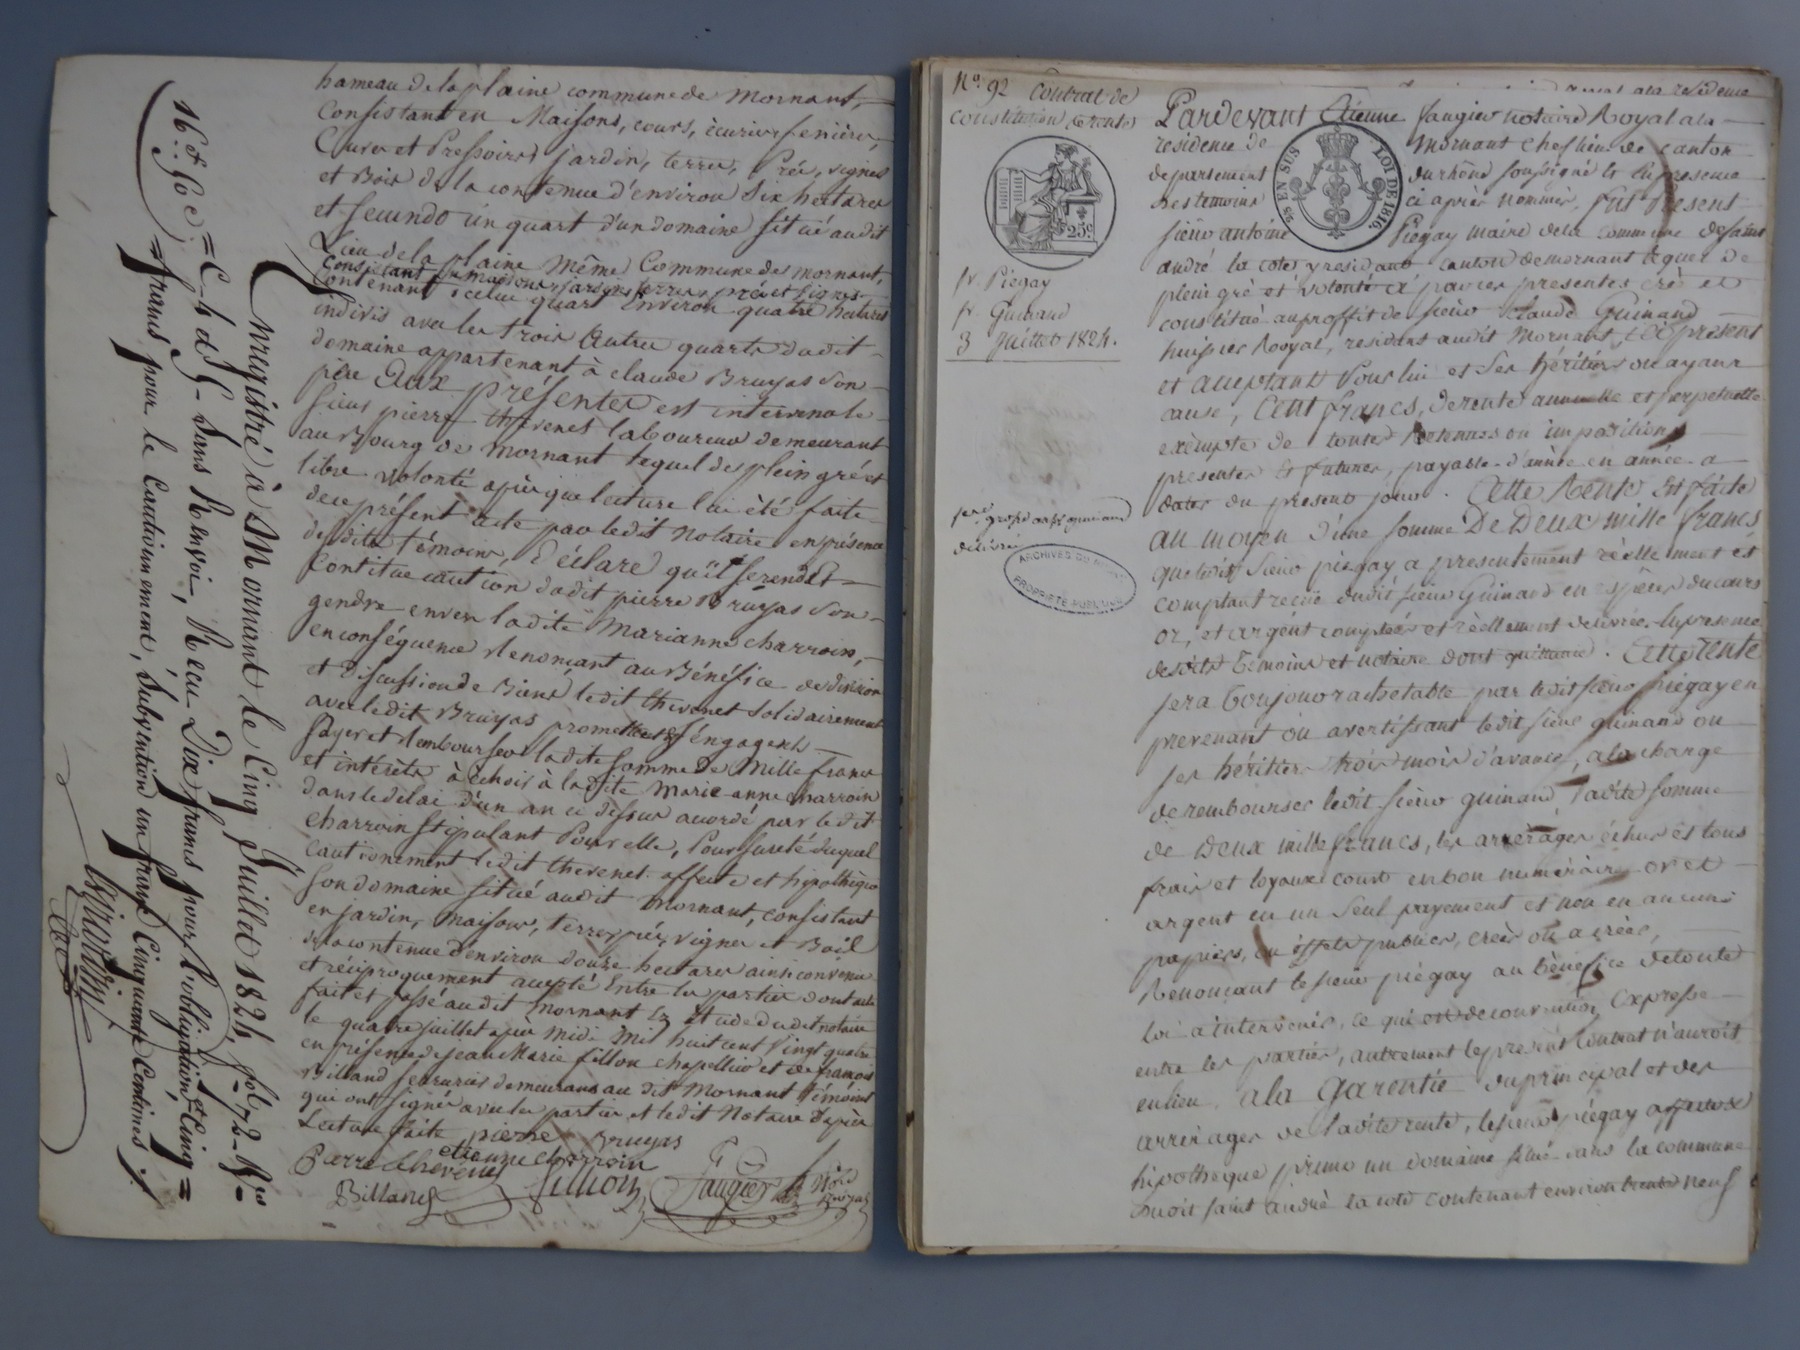 hameau de la plaine commune de Mornant,
Consistant en Maisons, cours, écurier feniére,
Cuver et Pressoirs jardin, terrer, Préz, vignes
et Bois de la contenue d'environ six hectares
et Secundo un quart d'un domaine situé audit
Lieu de la plaine même Commune de Mornant,
Consistant en maisons, jardins, terres, prés et vignes
Contenant icelui quart Environ quatre hectares
indivis avec les trois autres quarts dudit
domaine appartenant à Claude Bruyas son
père Aux présentes est intervenu le
sieur pierre thevenet laboureur demeurant
au Bourg de Mornant lequel de plein gré et
libre volonté après que lecture lui été faite
de ce présent acte par ledit Notaire en présence
desdits témoins, Déclare qu'il se rend et
Contitue caution dudit pierre Bruyas son
gendre envers ladite Marianne Charroin,
en conséquence Renonçant au Bénéfice de division
et discussion de Biens ledit thevenet solidairement
avec ledit Bruyas promettent et s'engagent
Payer et Rembourser ladite somme de Mille francs
et intérêts à échoir à ladite Marie-anne Charroin
dans le délai d'un an ci dessus accordé par ledit
Charroin stipulant Pour elle, Pour sureté duquel
Cautionement ledit thevenet affecte et hipothèque
son domaine situé audit Mornant, consistant
en jardin, maison, terres, prés, vignes et Bois
de la contenue d'environ douze hectares ainsi convenu
et réciproquement accepté Entre les parties dont acte
fait et passé audit Mornant En Etude dudit notaire
le quatre juillet après Midi Mil huit cent vingt quatre
en présence de jean Marie fillion chapellier et de françois
Billand serrurier demeurans au dit Mornant témoins
qui ont signé avec les parties et ledit Notaire Après
Lecture faite pierre Bruyas
Pierre thevenet etienne charroin
Billand fillion faugier
Enregistré à Mornant le Cinq Juillet 1824, fol. 72 Rco
Cs 4 et 5 sans Renvoi, Reçu Dix francs pour l'obligation, et Cinq
francs pour le Cautionnement, subvention un franc Cinquante Centimes.
16f 50c
No. 92 Contrat de
Constitution de rente
fr. Piégay
fr. Guinand
3 Juillet 1824.
25c.
25 EN SUS
LOI DE 1816.
1ère grosse au sr guinand
délivrée
ARCHIVES DU RHÔNE
PROPRIÉTÉ PUBLIQUE
Pardevant Etienne faugier notaire Royal à la
residence de Mornant Chef lieu de canton
departement du rhône soussigné Et En presence
des temoins ci après nommés, Fut Présent
sieur antoine Piegay maire de la commune de saint
andré la cote y residant canton de mornant lequel de
plein gré et volonté a par ces presentes créé et
constitué au proffit de sieur Claude Guinand
huissier Royal, residant audit Mornant, ici present
et acceptant Pour lui et ses héritiers ou ayant
cause, Cent francs, de rente annuelle et perpetuelle
exèmpte de toutes Retenues ou impositions
presentes Et futures, payable d'année en année a
dater du present jour. Cette Rente Est faite
au moyen d'une somme De Deux mille francs
que ledit sieur piégay a presentement réellement et
comptant reçue dudit sieur Guinand en espèces du cours
or, et argent comptées et réellement delivrées En presence
desdits témoins et notaire dont quittance. Cette rente
sera toujours rachetable par ledit sieur piégay en
prevenant ou avertissant ledit sieur guinand ou
ses héritiers trois mois d'avance, a la charge
de rembourser ledit sieur guinand, ladite somme
de deux mille francs, les arrérages échus et tous
frais et loyaux couts en bon numéraire or et
argent en un seul payement et non en aucuns
papiers, ou effets publics, créés ou a créér,
Renonçant le sieur piégay au bénéfice de toute
loi a intervenir, ce qui est de convention Expresse
entre les parties, autrement le present Contrat n'auroit
eu lieu. a la garentie du principal et des
arrérages de ladite rente, le sieur piégay affecte et
hipothèque primo un domaine situé dans la commune
dudit saint andré la cote contenant environ trente neuf